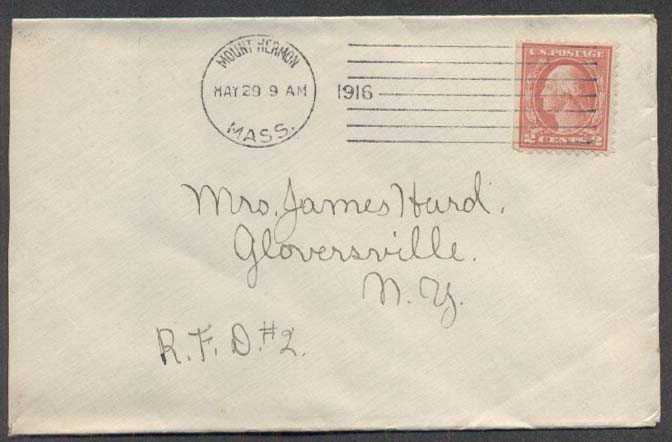 MOUNT HERMON
MAY 29 9 AM
1916
MASS.
U.S. POSTAGE
2 CENTS 2
Mrs. James Hurd.
Gloversville.
N. Y.
R. F. D. #2.